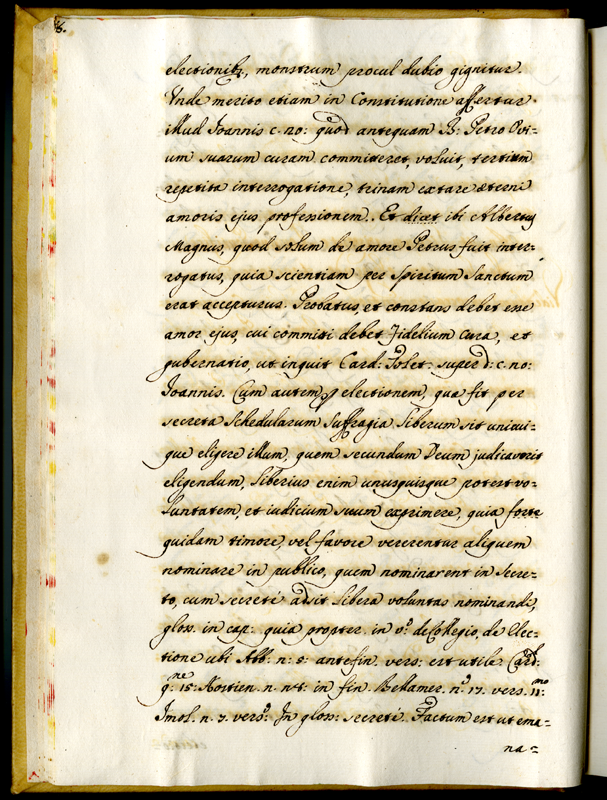 electionib9, monstrum procul dubio gignitur.
Inde merito etiam in Constitutione affertur
illud Ioannis c. no: quod antequam B: Petro Ovi-
um suarum curam committeret, voluit, tertium
repetita interrogatione, trinam extare æterni
amoris ejus professionem. Et dicit ibi Albertus
Magnus, quod solum de amore Petrus fuit inter-
rogatus, quia scientiam per Spiritum Sanctum
erat accepturus. Probatus, et constans debet esse
amor ejus, cui committi debet Fidelium Cura, et
gubernatio, ut inquit Card: Tolet: super d: c. no:
Ioannis. Cum autem p electionem, quæ fit per
secreta Schedularum Suffragia Liberum sit unicui-
que eligere illum, quem secundum Deum judicaverit
eligendum, Liberius enim unusquisque potest vo-
luntatem, et iudicium suum exprimere, quia forte
quidam timore, vel favore vererentur aliquem
nominare in publico, quem nominarent in Secre-
to, cum secreté adsit libera voluntas nominandi,
glos. in cap: quia propter in vo. de Collegio, de Elec-
tione ubi Abb: n: 8: antefin. vers: est utile Card:
q:ne 15: Hostien. n. nt: in fin Bellamer. no. 17. vers. 11:mo
Imol. n. 7. verso. In glos: secreté. Factum est ut ema-
na-